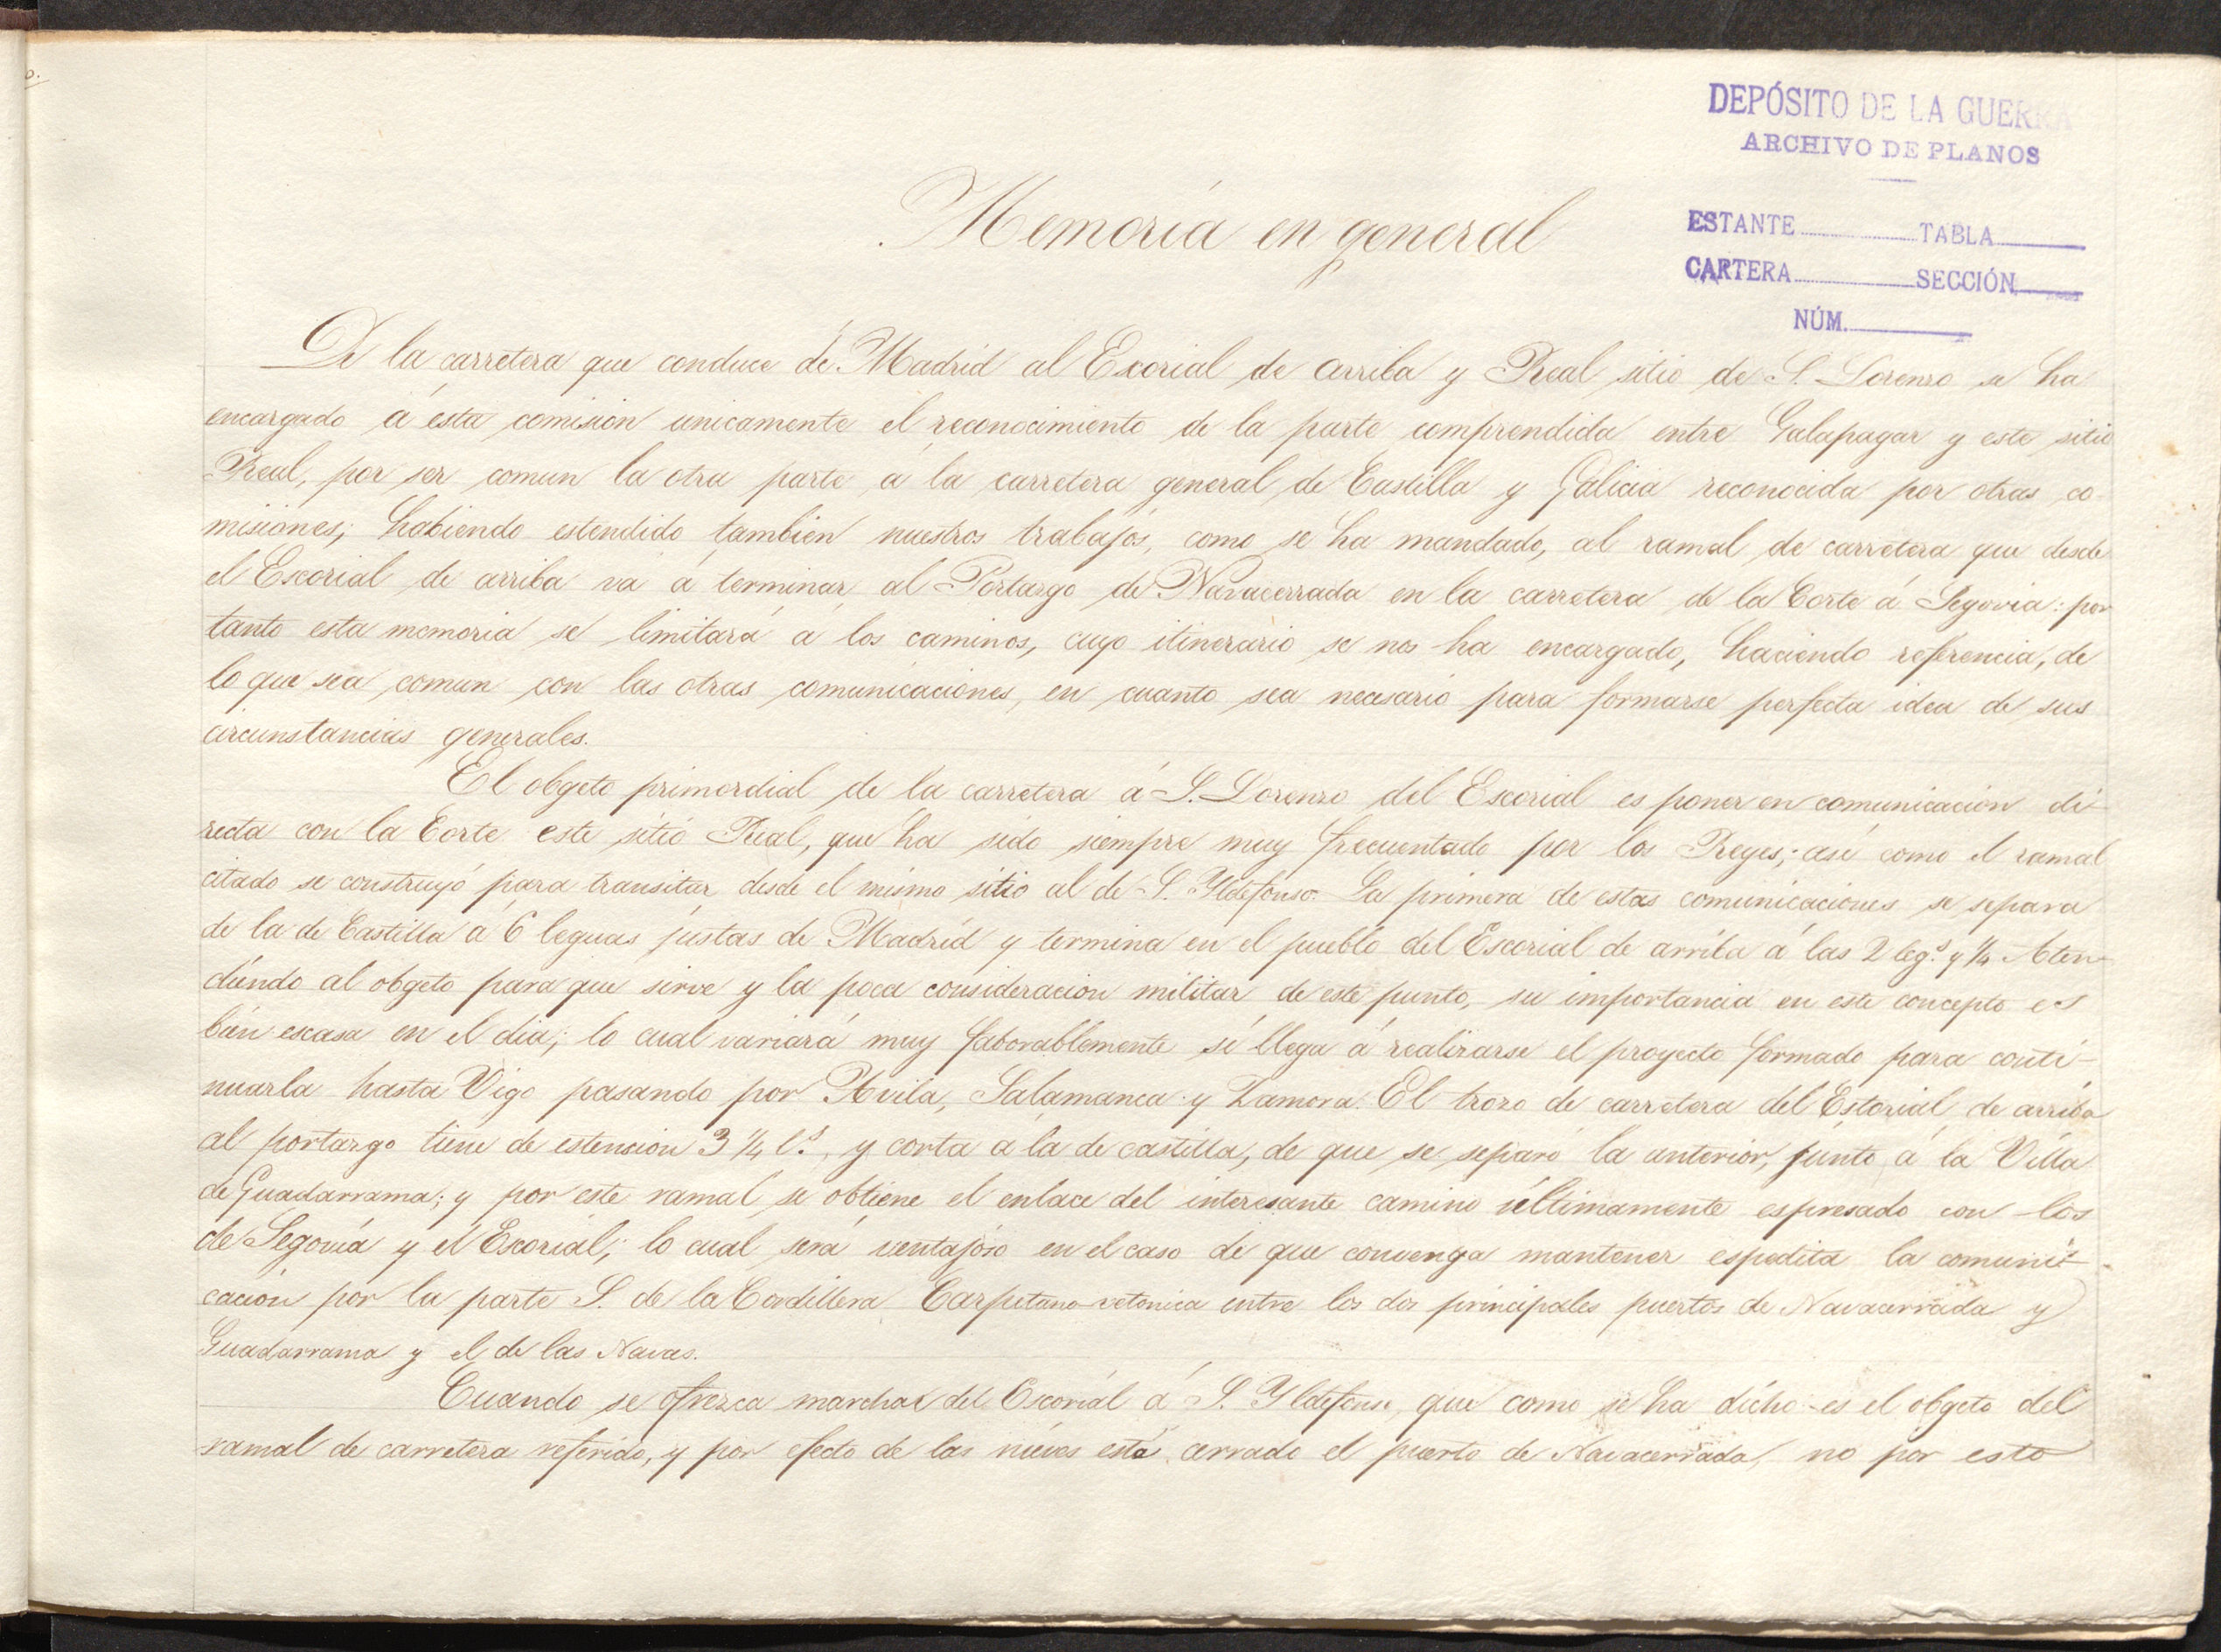 DEPÓSITO DE LA GUERRA
ARCHIVO DE PLANOS
ESTANTE TABLA
CARTERA SECCIÓN
NÚM.
Memoria en general
De la carretera que conduce de Madrid al Escorial de arriba y Real sitio de S. Lorenzo se ha
encargado á esta comision unicamente el reconocimiento de la parte comprendida entre Galapagar y este sitio
Real, por ser comun la otra parte á la carretera general de Castilla y Galicia reconocida por otras co-
misiones; habiendo estendido tambien nuestros trabajos, como se ha mandado, al ramal de carretera que desde
el Escorial de arriba va á terminar al Portazgo de Navacerrada en la carretera de la Corte á Segovia: por
tanto esta memoria se limitará á los caminos, cuyo itinerario se nos ha encargado, haciendo referencia, de
lo que sea comun con las otras comunicaciones, en cuanto sea necesario para formarse perfecta idea de sus
circunstancias generales.
El obgeto primordial de la carretera á S. Lorenzo del Escorial es poner en comunicacion di-
recta con la Corte este sitio Real, que ha sido siempre muy frecuentado por los Reyes; asi como el ramal
citado se construyó para transitar desde el mismo sitio al de S. Yldefonso. La primera de estas comunicaciones se separa
de la de Castilla á 6 leguas justas de Madrid y termina en el pueblo del Escorial de arriba á las 2 leg.s y 1/4. Aten-
diendo al obgeto para que sirve y la poca consideracion militar de este punto, su importancia en este concepto es
bien escasa en el dia; lo cual variará muy faborablemente si llega á realizarse el proyecto formado para conti-
nuarla hasta Vigo pasando por Avila, Salamanca y Zamora. El trozo de carretera del Escorial de arriba
al portazgo tiene de estension 3 1/4 l.s, y corta a la de castilla, de que se separó la anterior, junto á la Villa
de Guadarrama; y por este ramal se obtiene el enlace del interesante camino ultimamente espresado con los
de Segovia y el Escorial; lo cual será ventajoso en el caso de que convenga mantener espedita la comuni-
cacion por la parte S. de la Cordillera Carpetano-vetonica entre los dos principales puertos de Navacerrada y
Guadarrama y el de las Navas.
Cuando se ofrezca marchar del Escorial á S. Yldefonso, que como se ha dicho es el obgeto del
ramal de carretera referido, y por efecto de las nieves está cerrado el puerto de Navacerrada, no por esto